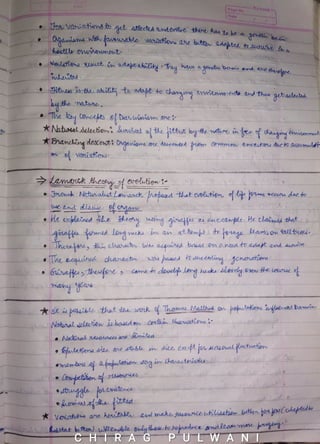 • For variations to get selected and evolve there has to be a genetic basis
• Organisms with favourable variations are better adapted to survive in a
hostile environment
• Variations result in adaptability. They have a genetic basis and are therefore
inherited
• Fitness is the ability to adapt to changing environments and thus get selected
by the nature.
• The key concepts of Darwinism are:-
★ Natural selection: survival of the fittest by the nature in face of changing environment
★ Branching descent: Organisms are descended from common ancestors due to
of variations
→ Lamarck theory of evolution:-
• French Naturalist Lamarck proposed that evolution of life forms occurs due to
use and disuse of organs
• He explained this theory using giraffes as an example. He claimed that
giraffes formed long necks in an attempt to forage leaves on tall trees.
• Therefore, this character was acquired based on a need to adapt and survive
• The acquired character was passed to succeeding generations
• Giraffes, therefore, came to develop long necks slowly over the course of
many years
★ It is possible that the work of Thomas Malthus on population influenced Darwin.
Natural selection is based on certain observations:-
• Natural resources are limited
• Population sizes are stable in size except for seasonal fluctuation
• members of a population vary in characteristics
• Competition for resources
• struggle for existence
• Survival of the fittest
★ Variations are heritable and make resource utilisation better for few (adapted to
habitat better) will enable only those to reproduce and leave more progeny.
CHIRAG PULWANI